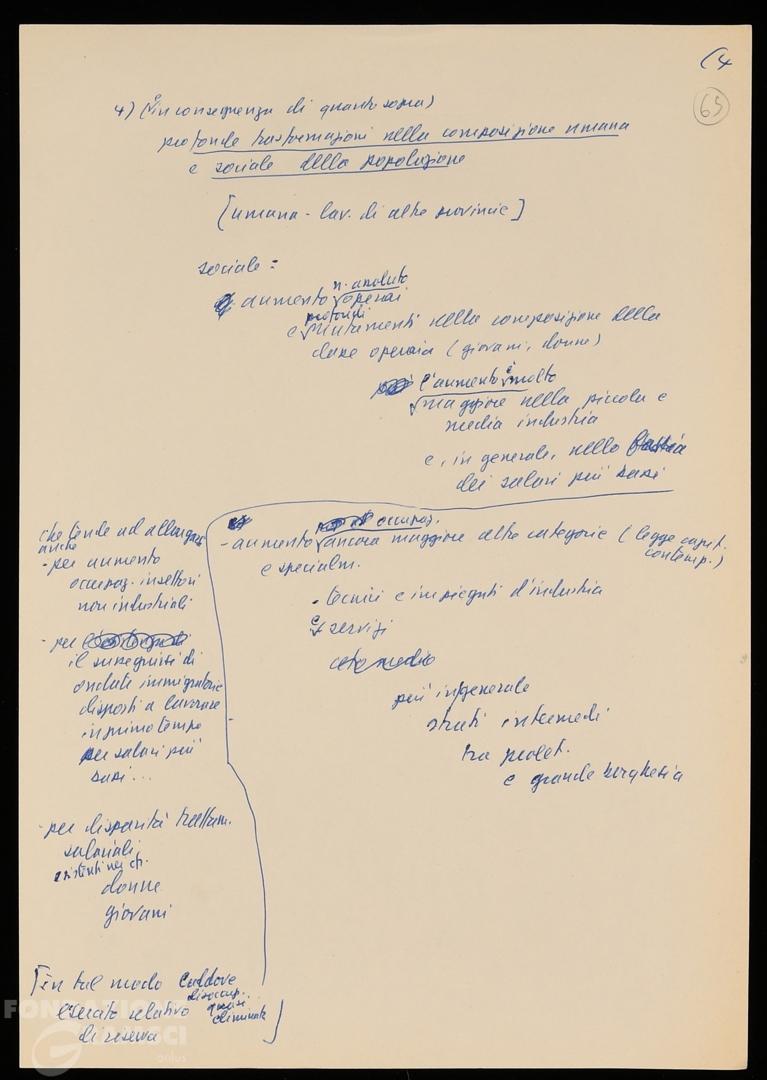 (4
65
4) (e in conseguenza di quanto sopra)
profonde trasformazioni nella composizione umana
e sociale della popolazione
[umana - lav. di altre provincie]
sociale:
n. assoluto
aumento operai
profondi
e mutamenti nella composizione della
classe operaia (giovani, donne)
l'aumento è molto
maggiore nella piccola e
media industria
e, in generale, nella fascia
dei salari più bassi
occupaz.
- aumento ancora maggiore altre categorie (legge capit.
contemp.)
e specialm.
- tecnici e impiegati d'industria
e servizi
ceto medio
più in generale
strati intermedi
tra prolet.
e grande borghesia
che tende ad allargarsi
anche
- per aumento
occupaz. in settori
non industriali
- per
il susseguirsi di
ondate immigratorie
disposti a lavorare
in primo tempo
per salari più
bassi...
- per disparità trattam.
salariali
esistenti nei cfr.
donne
giovani
[in tal modo laddove
disoccup.
l'esercito relativo quasi
eliminata
di riserva ]
FONDAZIONE
GRAMSCI
onlus